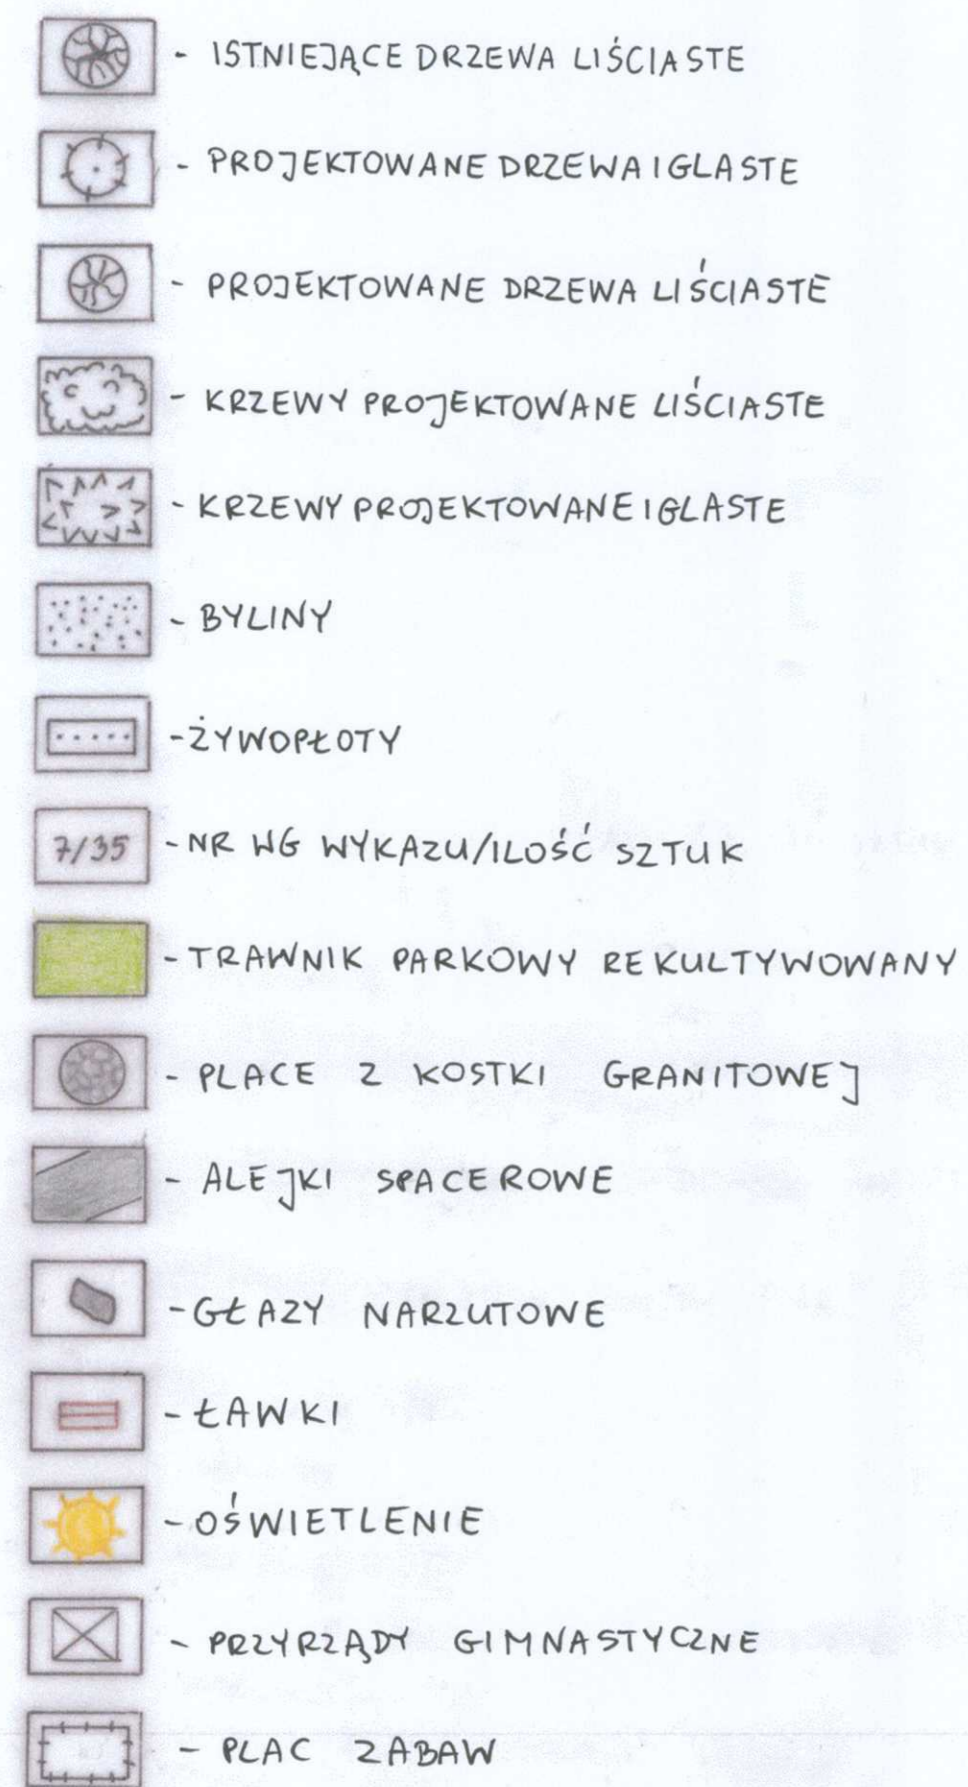 - ISTNIEJĄCE DRZEWA LIŚCIASTE
- PROJEKTOWANE DRZEWA IGLASTE
- PROJEKTOWANE DRZEWA LIŚCIASTE
- KRZEWY PROJEKTOWANE LIŚCIASTE
- KRZEWY PROJEKTOWANE IGLASTE
- BYLINY
- ŻYWOPŁOTY
7/35 - NR WG WYKAZU/ILOŚĆ SZTUK
- TRAWNIK PARKOWY REKULTYWOWANY
- PLACE Z KOSTKI GRANITOWEJ
- ALEJKI SPACEROWE
- GŁAZY NARZUTOWE
- ŁAWKI
- OŚWIETLENIE
- PRZYRZĄDY GIMNASTYCZNE
- PLAC ZABAW